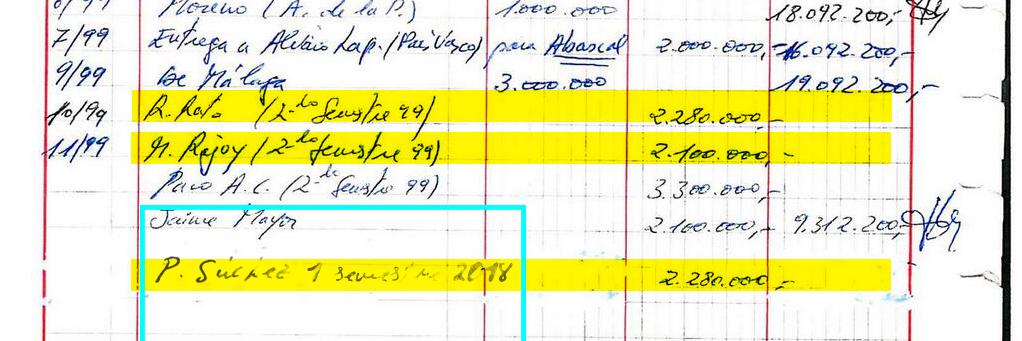 8/99 Moreno (A. de la P.) 1.000.000 18.092.200,-
7/99 Entrega a Alvaro Lap. (Pais Vasco) para Abascal 2.000.000,- 16.092.200,-
9/99 De Málaga 3.000.000 19.092.200,-
10/99 R. Rato (2do Semestre 99) 2.280.000,-
11/99 M. Rajoy (2do semestre 99) 2.100.000,-
Paco A.C. (2do semestre 99) 3.300.000,-
Jaime Mayor 2.100.000,- 9.312.200,-
P. Sánchez 1 semestre 2018 2.280.000,-